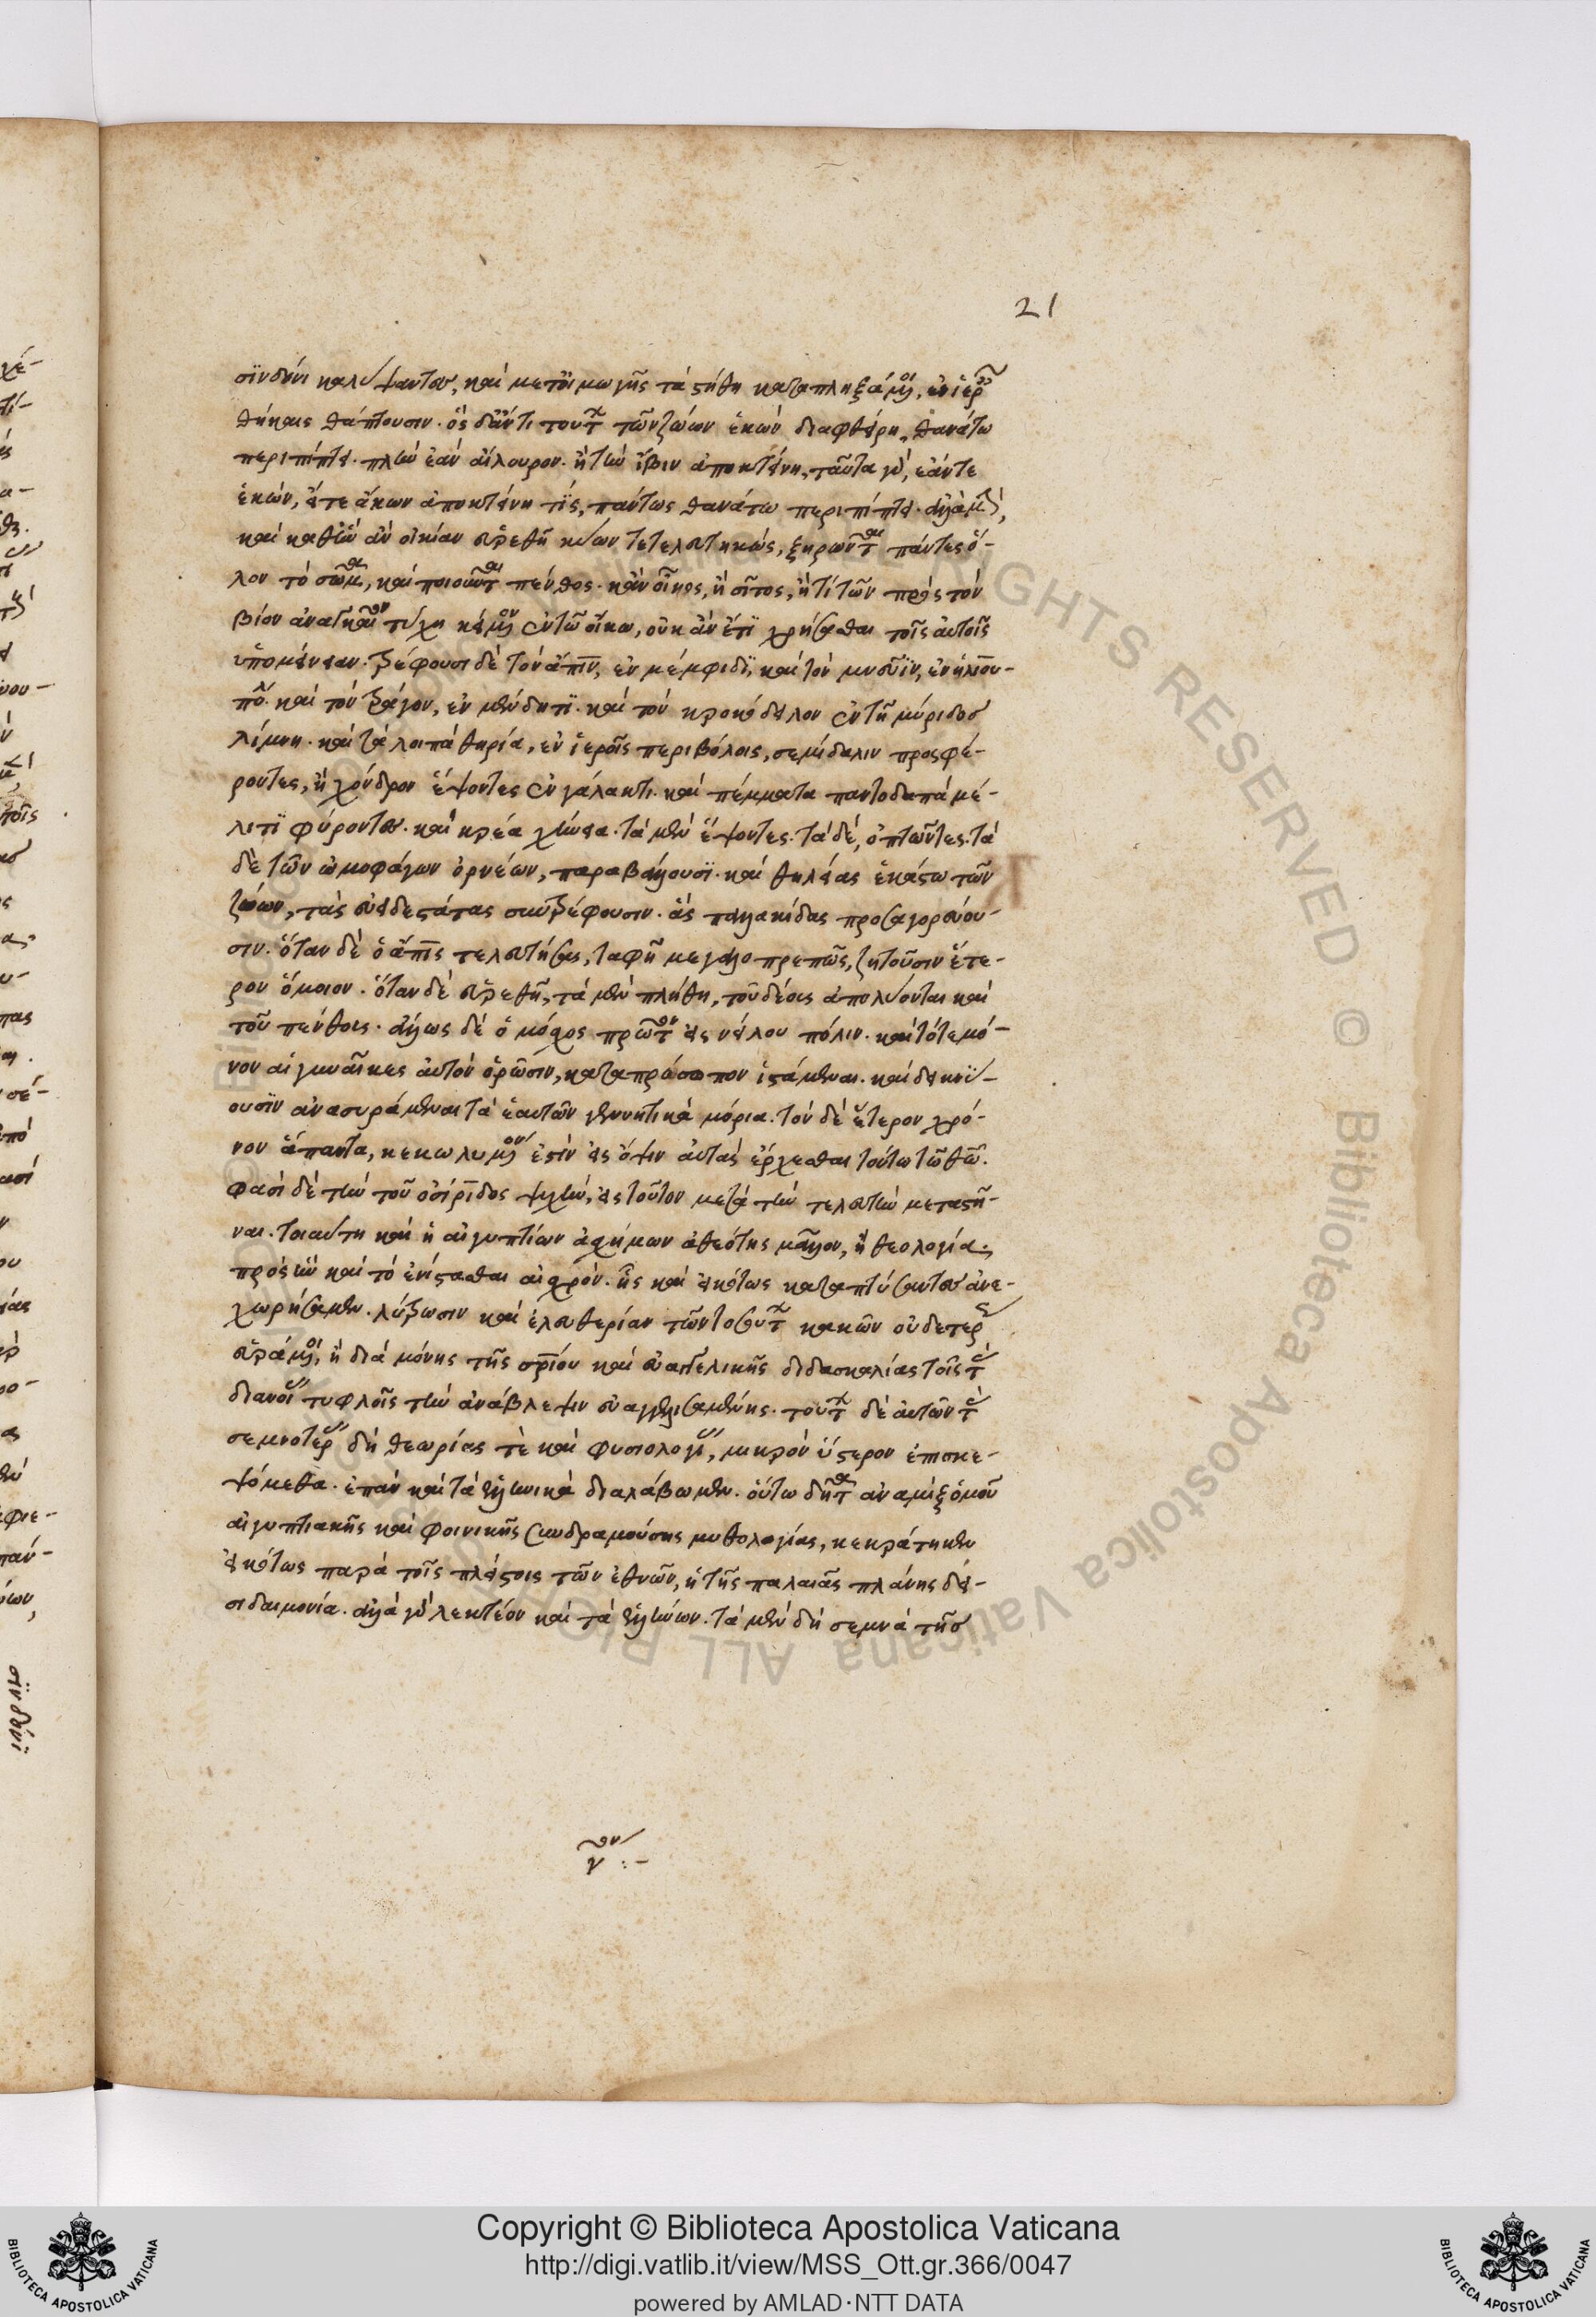 21
σϊνδόνι καλύψαντες, καὶ μετ᾽ οἰμωγῆς τὰ στήθη καταπληξάμενοι, ἐν ἱεραῖς
θήκαις θάπτουσιν. ὃς δ᾽ ἄν τι τούτων τῶν ζώων ἑκὼν διαφθείρη, θανάτω
περιπίπτει. πλὴν ἐὰν αἴλουρον. ἢ τὴν ἴβιν ἀποκτείνη, ταῦτα γὰρ, ἐάντε
ἑκὼν, εἴτε ἄκων ἀποκτείνη τὶς, πάντως θανάτω περιπίπτει. ἀλλὰ μὴν,
καὶ καθ᾽ ἣν ἂν οἰκίαν εὑρεθῆ κύων τετελευτηκὼς, ξηρῶνται πάντες ὅ-
λον τὸ σῶμα, καὶ ποιοῦνται πένθος. κἂν οἶνος, ἢ σῖτος, ἤ τι τῶν πρὸς τὸν
βίον ἀναγκαίων τύχη κείμενον ἐν τῶ οἴκω, οὐκ ἂν ἔτϊ χρήσασθαι τοῖς αὐτοῖς
ὑπομείνειαν. τρέφουσι δὲ τὸν ἄπιν, ἐν μέμφιδϊ, καὶ τὸν μνεῦϊν, ἐν ἡλιου-
πόλει. καὶ τὸν τράγον, ἐν μένδητϊ. καὶ τὸν κροκόδειλον ἐν τῆ μύριδος
λίμνη. καὶ τὰ λοιπὰ θηρία, ἐν ἱεροῖς περιβόλοις, σεμίδαλιν προσφέ-
ροντες, ἢ χόνδρον ἕψοντες ἐν γάλακτι. καὶ πέμματα παντοδαπὰ μέ-
λιτϊ φύροντες. καὶ κρέα χήνεια. τὰ μὲν ἕψοντες. τὰ δὲ, ὀπτῶντες. τὰ
δὲ τῶν ὠμοφάγων ὀρνέων, παραβάλλουσϊ. καὶ θηλείας ἑκάστω τῶν
ζώων, τὰς εὐειδεστάτας συντρέφουσιν. ἃς παλλακίδας προσαγορεύου-
σιν. ὅταν δὲ ὁ ἄπις τελευτήσας, ταφῆ μεγαλοπρεπῶς, ζητοῦσιν ἕτε-
ρον ὅμοιον. ὅταν δὲ εὑρεθῆ, τὰ μὲν πλήθη, τοῦ δέους ἀπολύονται καὶ
τοῦ πένθους. ἄλλως δὲ ὁ μόσχος πρῶτον εἰς νείλου πόλιν. καὶ τότε μό-
νον αἱ γυναῖκες αὐτὸν ὁρῶσιν, καταπρόσωπον ἱστάμεναι. καὶ δεικνύ-
ουσϊν ἀνασυράμεναι τὰ ἑαυτῶν γεννητικὰ μόρια. τὸν δὲ ἕτερον χρό-
νον ἅπαντα, κεκωλυμένον ἐστὶν εἰς ὄψιν αὐτὰς ἔρχεσθαι τούτω τῶ θεῶ.
φασὶ δὲ τὴν τοῦ ὀσίριδος ψυχὴν, εἰς τοῦτον μετὰ τὴν τελευτὴν μεταστῆ-
ναι. τοιαύτη καὶ ἡ αἰγυπτίων ἀσχήμων ἀθεότης μᾶλλον, ἢ θεολογία.
πρὸς ἣν καὶ τὸ ἐνίστασθαι αἰσχρόν. ἧς καὶ εἰκότως καταπτύσαντες ἀνε-
χωρήσαμεν. λύτρωσιν καὶ ἐλευθερίαν τῶν τοσούτων κακῶν οὐδ᾽ ἑτέρως
εὑράμενοι, ἢ διὰ μόνης τῆς σωτηρίου καὶ εὐαγγελικῆς διδασκαλίας τοῖς τὰς
διανοίας τυφλοῖς τὴν ἀνάβλεψιν εὐαγγελισαμένης. τούτων δὲ αὐτῶν τὰ
σεμνοτέρας δὴ θεωρίας τὲ καὶ φυσιολογίας, μικρὸν ὕστερον ἐπισκε-
ψόμεθα. ἐπὰν καὶ τὰ ἑλληνικὰ διαλάβωμεν. οὕτω δῆτα ἀναμὶξ ὁμοῦ
αἰγυπτιακῆς καὶ φοινικῆς συνδραμούσης μυθολογίας, κεκράτηκεν
εἰκότως παρὰ τοῖς πλείστοις τῶν ἐθνῶν, ἡ τῆς παλαιᾶς πλάνης δει-
σιδαιμονία. ἀλλὰ γὰρ λεκτέον καὶ τὰ ἑλλήνων. τὰ μὲν δὴ σεμνὰ τῆς
σϊνδόνϊ
Copyright © Biblioteca Apostolica Vaticana
http://digi.vatlib.it/view/MSS_Ott.gr.366/0047
powered by AMLAD·NTT DATA